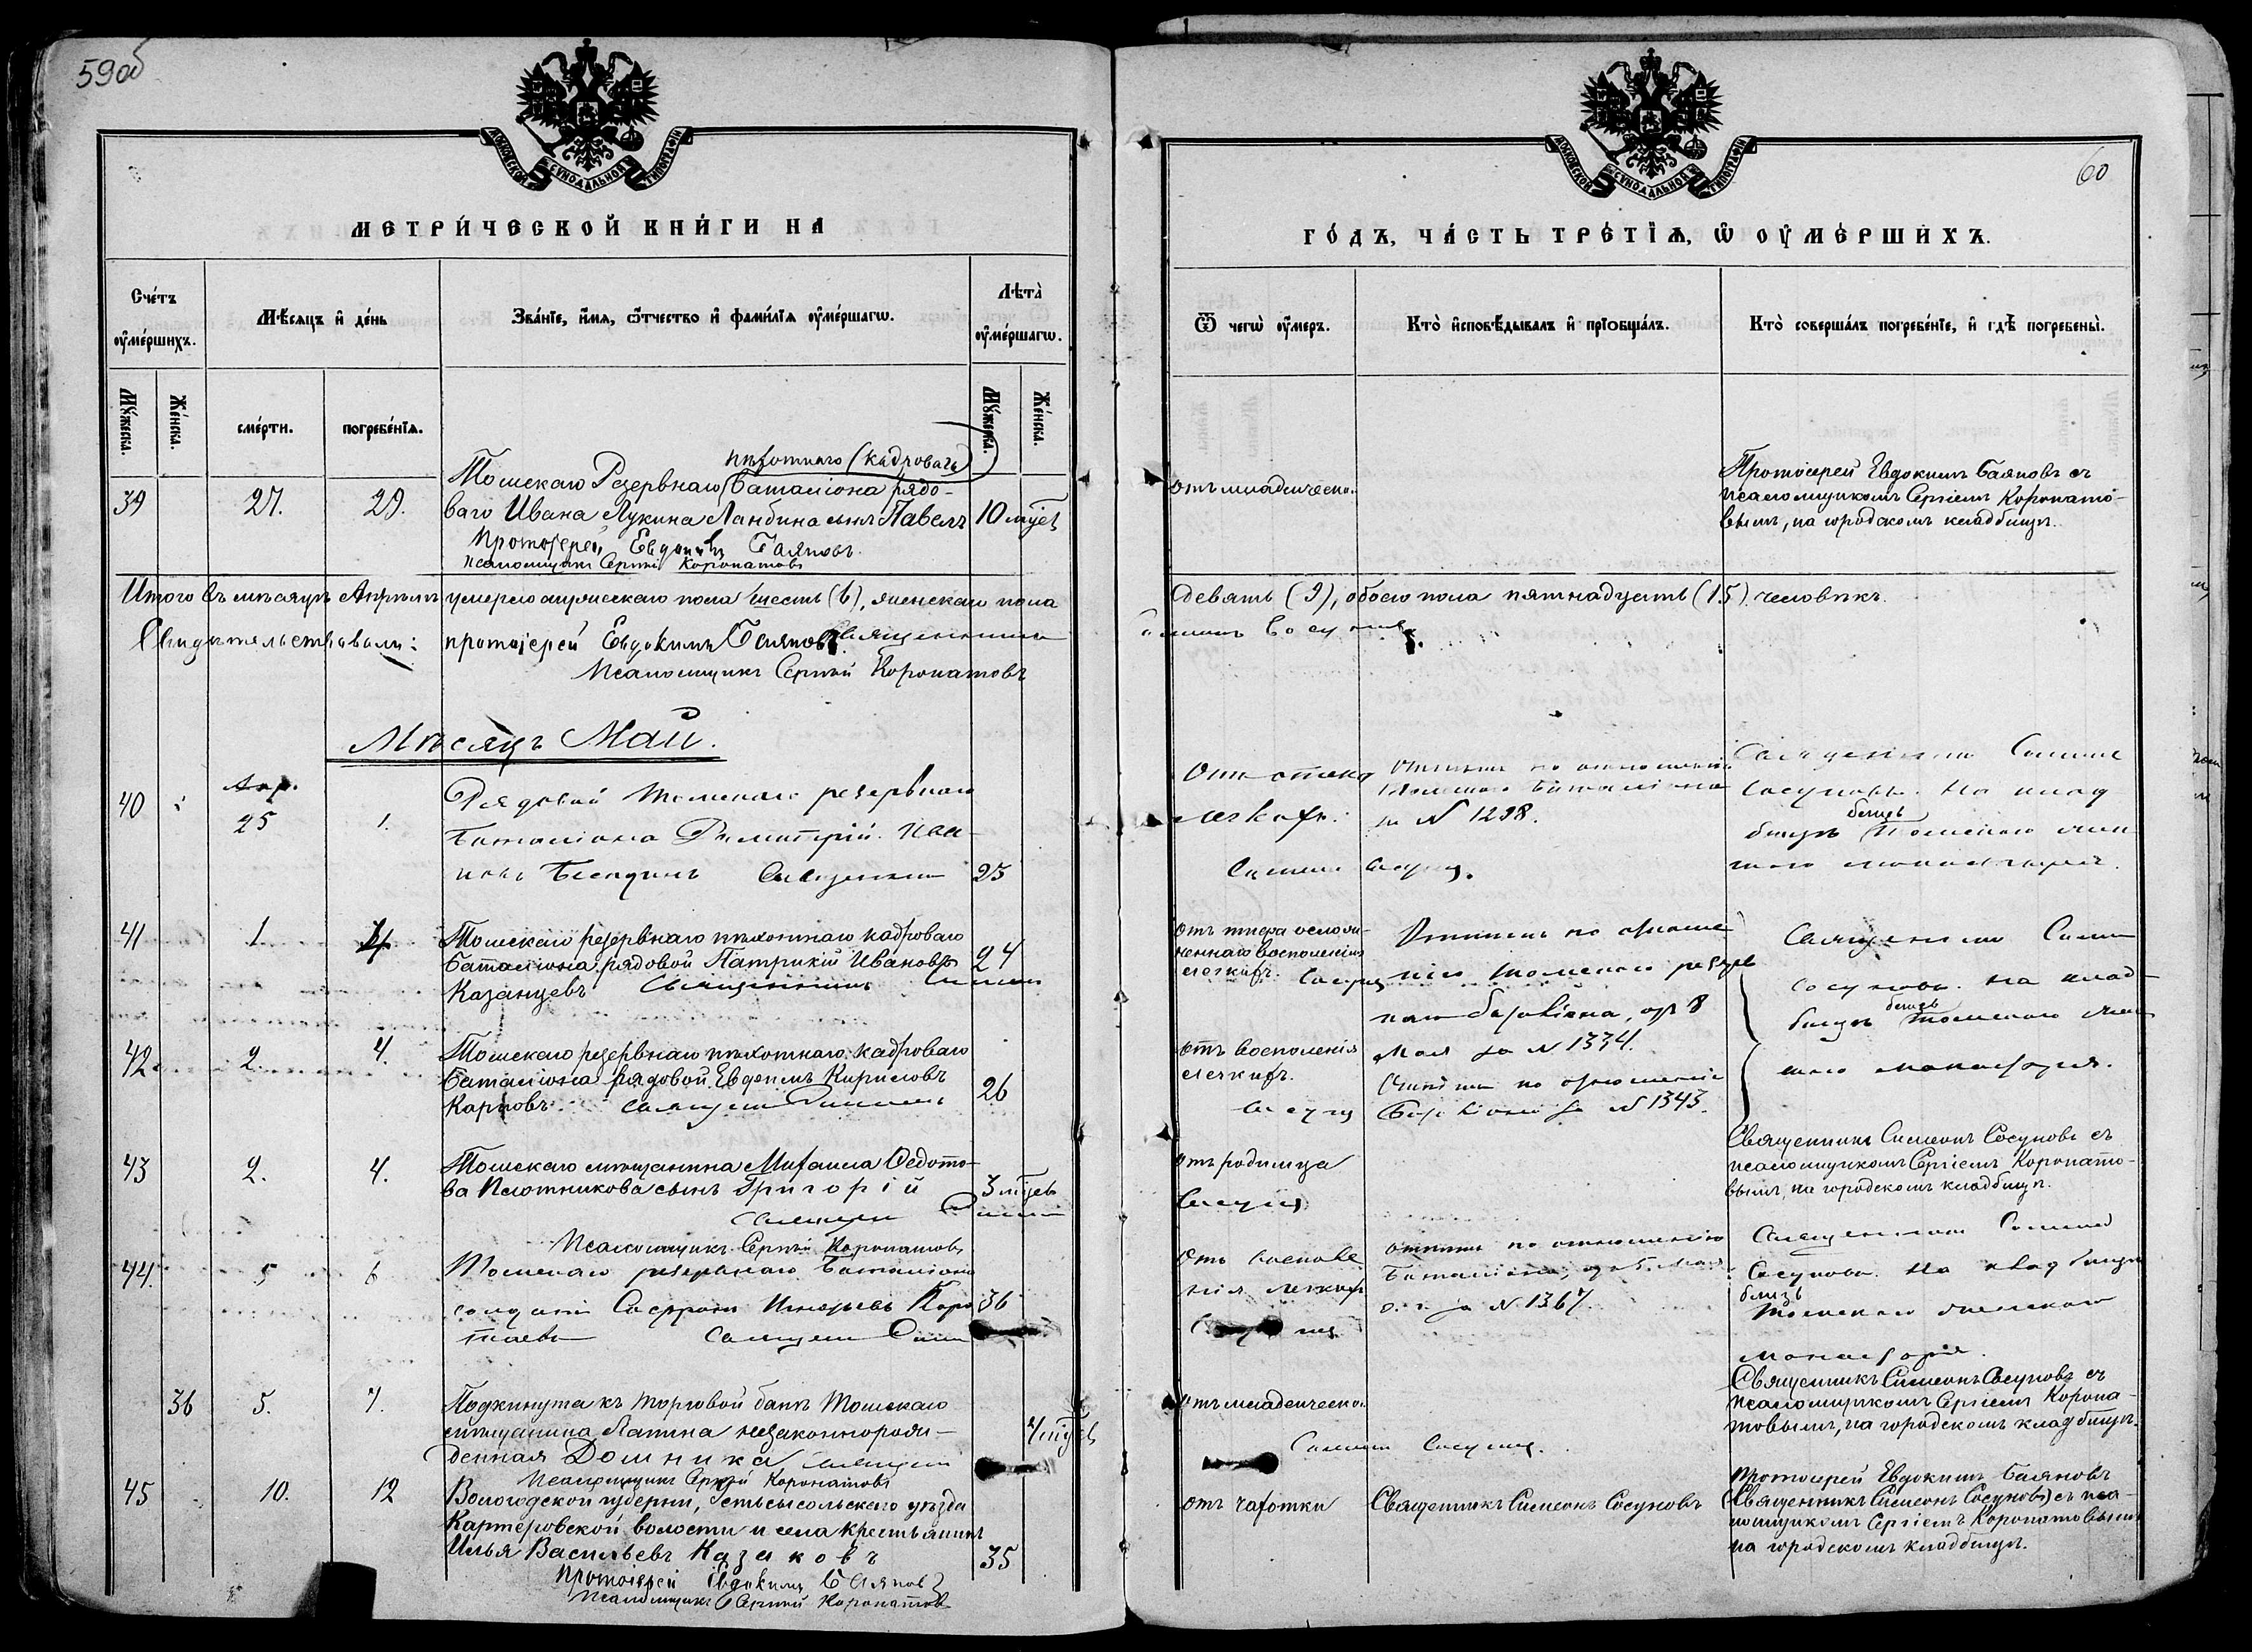 59 об
МОСКОВСКОЙ СУНОДАЛЬНОЙ ТИПОГРАФІИ
МЕТРИ́ЧЕСКОЙ КНИ́ГИ НА
Сче́тъ оу҆ме́ршихъ.
Мѣ́сяцъ и҆ де́нь
Зва́нїе, и҆́мя, ѻ҆́тчество и҆ фами́лїя оу҆ме́ршагѡ.
Лѣта̀ оу҆ме́ршагѡ.
Мꙋ́жеска.
Же́нска.
сме́рти.
погребе́нїѧ.
Мꙋ́жеска.
Же́нска.
39
27.
29.
пѣхотнаго (кадроваго)
Томскаго Резервнаго Баталіона рядо-
ваго Ивана Лукина Ланбина сынъ Павелъ
10 мѣс
Протоіерей Евдокимъ Баяновъ.
Псаломщикъ Сергій Коронатовъ
Итого въ мѣсяцѣ Апрѣлѣ умерло мужескаго пола шесть (6), женскаго пола
Свидѣтельствовали: протоіерей Евдокимъ Баяновъ. Священникъ
Псаломщикъ Сергѣй Коронатовъ
Мѣсяцъ Май.
40
Апр.
25
1.
Рядовой Томскаго резервнаго
Баталіона Димитрій Ива-
новъ Священникъ
25
41
1
4
Томскаго резервнаго пѣхотнаго кадроваго
Баталіона рядовой Патрикій Ивановъ
24
Казанцевъ Священникъ Симеонъ
42
2.
4.
Томскаго резервнаго пѣхотнаго кадроваго
Баталіона рядовой Евдокимъ Кириловъ
26
Карповъ.
43
2.
4.
Томскаго мѣщанина Михаила Ѳедото-
ва Плотникова сынъ Григорій
3 мѣсц
Псаломщикъ Сергѣй Коронатовъ
44
5
6
Томскаго резервнаго Баталіона
солдатъ Софронъ Игнатьевъ Коро
36
таевъ
36
5.
7.
Подкинута къ торговой банѣ Томскаго
мѣщанина Лапина незаконнорож-
денная Домника
4 мѣс
Псаломщикъ Сергѣй Коронатовъ
45
10.
12
Вологодской губерніи, Устьсысольскаго уѣзда
волости и села крестьянинъ
Илья Васильевъ Казаковъ
35
Протоіерей Евдокимъ Баяновъ
Псаломщикъ Сергѣй Коронатовъ
60
МОСКОВСКОЙ СУНОДАЛЬНОЙ ТИПОГРАФІИ
ГО́ДЪ, ЧА́СТЬ ТРЕ́ТЇѦ, Ѡ҆ ОУ҆МЕ́РШИХЪ.
Ѿ чегѡ̀ оу҆́меръ.
Кто̀ и҆сповѣ́дывалъ и҆ прїобща́лъ.
Кто̀ соверша́лъ погребе́нїе, и҆ гдѣ̀ погребены̀.
отъ младенческой
Протоіерей Евдокимъ Баяновъ съ
псаломщикомъ Сергіемъ Коронато-
вымъ, на городскомъ кладбищѣ.
девять (9), обоего пола пятнадцать (15) человѣкъ.
Симеонъ Сосуновъ
Отъ отека
легкихъ.
Отпѣтъ по отношенію
Томскаго Баталіона
за № 1298.
Священникъ Симеонъ
Сосуновъ. На клад
бищѣ близъ Томскаго жен
скаго монастыря.
отъ тифа ослож-
неннаго воспаленіемъ
легкихъ.
Отпѣтъ по отноше
нію Томскаго резер
Баталіона, отъ 8
Мая за № 1334.
Священникъ Симеонъ
Сосуновъ. На клад-
бищѣ близъ Томскаго жен
скаго монастыря.
отъ воспаленія
легкихъ.
по отношенію
Баталіона за № 1343.
отъ родимца
Священникъ Симеонъ Сосуновъ съ
псаломщикомъ Сергіемъ Коронато-
вымъ, на городскомъ кладбищѣ.
Отъ воспале
нія легкихъ
отпѣтъ по отношенію
Баталіона, отъ 6 Мая
за № 1367.
Священникъ Симеонъ
Сосуновъ. На кладбищѣ
близъ
Томскаго женскаго
монастыря.
отъ младенческой
Симеонъ Сосуновъ.
Священникъ Симеонъ Сосуновъ съ
псаломщикомъ Сергіемъ Корона-
товымъ, на городскомъ кладбищѣ.
отъ чахотки
Священникъ Симеонъ Сосуновъ
Протоіерей Евдокимъ Баяновъ
(Священникъ Симеонъ Сосуновъ) съ пса-
ломщикомъ Сергіемъ Коронатовымъ
на городскомъ кладбищѣ.